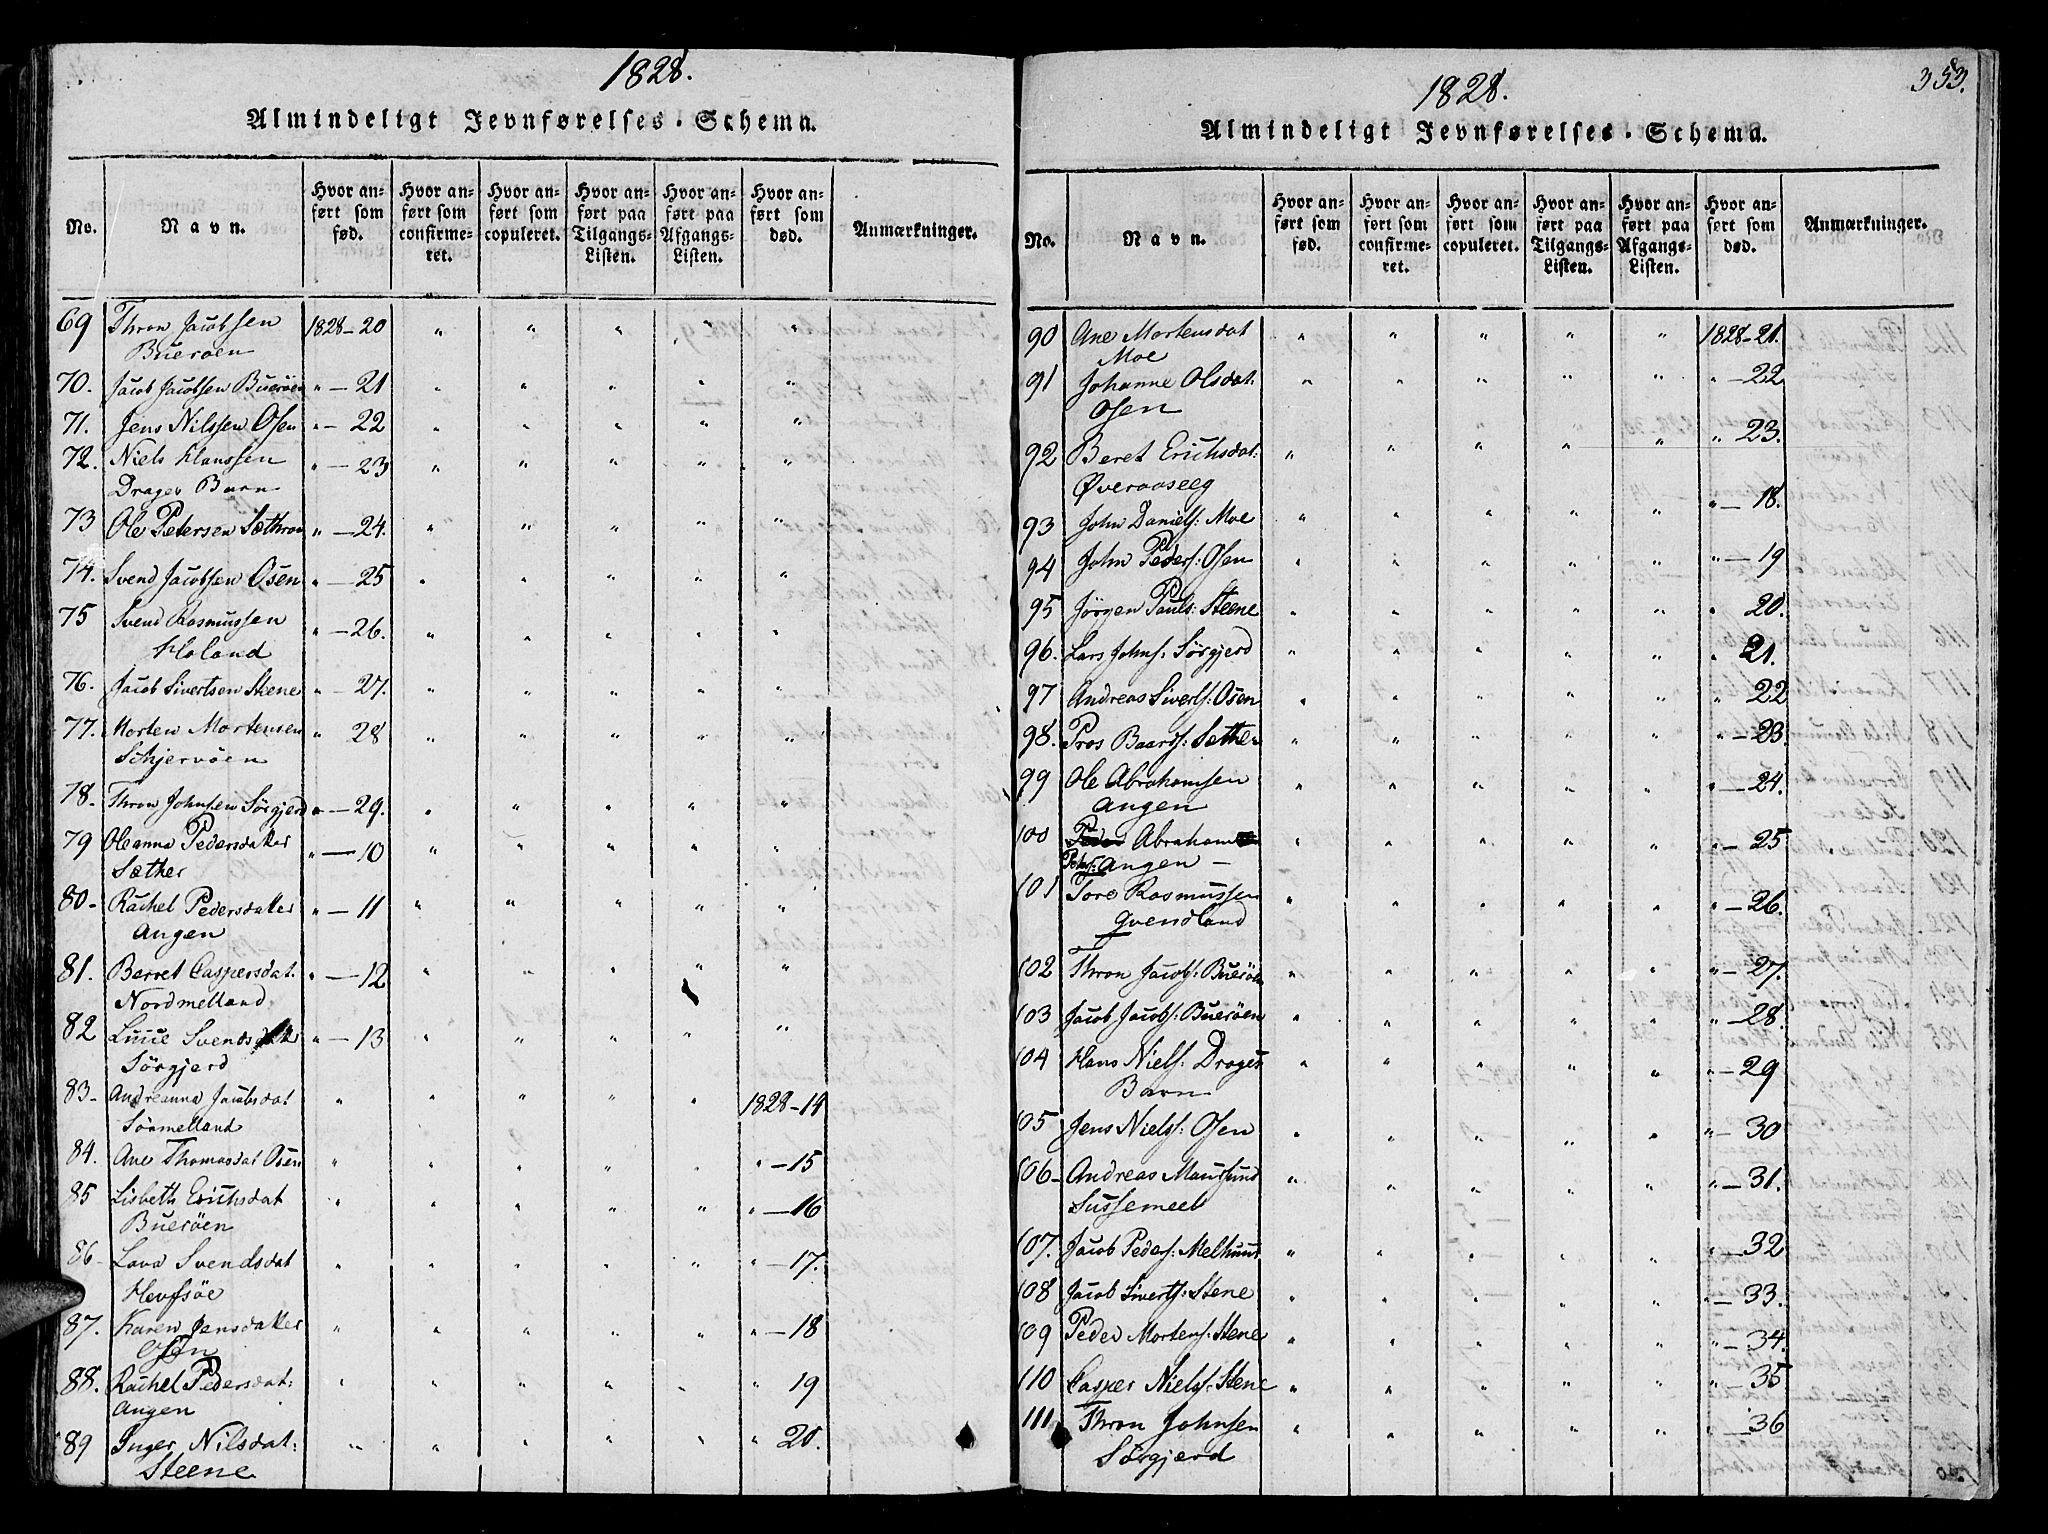 1828.
Almindeligt Jevnførelses-Schema.
No.
Navn.
Hvor an-
ført som
fød.
Hvor an-
ført som
confirme-
ret.
Hvor an-
ført som
copuleret.
Hvor an-
ført paa
Tilgangs-
Listen.
Hvor an-
ført paa
Afgangs-
Listen.
Hvor an-
ført som
død.
Anmærkninger.
69 Thron Jacobsen 1828-20 " " " " "
Bueröen
70. Jacob Jacobsen Bueröen " - 21 " " " " "
71. Jens Nilssen Osen " - 22 " " " " "
72. Niels Klaussen " - 23 " " " " "
Drages Barn
73 Ole Petersen Sæthran " - 24. " " " " "
74. Svend Jacobsen Osen " - 25 " " " " "
75 Svend Rasmussen " - 26. " " " " "
Haland
76. Jacob Sivertsen Stene " - 27. " " " " "
77. Morten Mortensen " 28 " " " " "
Schjervöen
78. Thron Johnsen Sörgjerd " - 29. " " " " "
79 Oleanna Pedersdatter " - 10 " " " " "
Sæther
80- Rachel Pedersdatter " - 11 " " " " "
Angen
81. Berret Caspersdat. " - 12 " " " " "
Nordmelland
82 Lucie Svendsdatter " - 13 " " " " "
Sörgjerd
83- Andreanna Jacobsdat " " " " " 1828-14
Sörmelland
84. Ane Thomasdat Osen " " " " " " - 15
85 Lisbeth Erichsdat " " " " " " - 16
Bueröen
86- Lava Svendsdat " " " " " " - 17.
Hevfsöe
87. Karen Jensdatter " " " " " " - 18
Osen
88. Rachel Pedersdat: " " " " " " 19
Angen
89 Inger Nilsdat: " " " " " " 20.
Steene
353.
1828.
Almindeligt Jevnførelses-Schema.
No.
Navn.
Hvor an-
ført som
fød.
Hvor an-
ført som
confirme-
ret.
Hvor an-
ført som
copuleret.
Hvor an-
ført paa
Tilgangs-
Listen.
Hvor an-
ført paa
Afgangs-
Listen.
Hvor an-
ført som
død.
Anmærkninger.
90 Ane Mortensdat " " " " " 1828-21.
Moe
91 Johanne Olsdat: " " " " " " - 22
Osen
92 Beret Erichsdat: " " " " " " 23.
Øveraaseeg
93 John Daniels: Moe " " " " " " - 18.
94 John Peders: Osen " " " " " " - 19
95 Jörgen Pauls: Steene " " " " " " 20.
96. Lars Johns: Sörgjerd " " " " " " 21.
97 Andreas Siverts: Osen " " " " " " 22
98. Pros Baards: Sæther " " " " " " - 23.
99 Ole Abrahamsen " " " " " " - 24.
Angen
100 Abraham " " " " " " - 25
Peders: Angen -
101 Tore Rasmussen " " " " " " - 26.
Qvendland
102 Thron Jacobs: Bueröen " " " " " " - 27.
103 Jacob Jacobs: Bueröen " " " " " " - 28.
104 Hans Niels: Drages " " " " " " - 29
Barn
105 Jens Niels: Osen " " " " " " - 30
106- Andreas " " " " " " - 31.
Sussemeel
107. Jacob Peders: Melhuus " " " " " " - 32
108 Jacob Siverts: Stene " " " " " " - 33.
109 Peder Mortens: Stene " " " " " " - 34.
110 Casper Niels: Stene " " " " " " - 35
111 Thron Johnsen " " " " " " 36
Sörgjerd